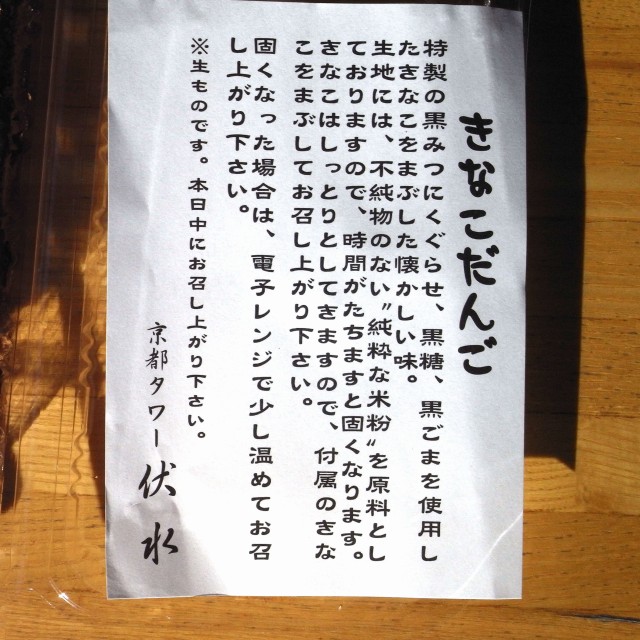 きなこだんご
特製の黒みつにくぐらせ、黒糖、黒ごまを使用し
たきなこをまぶした懐かしい味。
生地には、不純物のない〝純粋な米粉〟を原料とし
ておりますので、時間がたちますと固くなります。
きなこはしっとりとしてきますので、付属のきな
こをまぶしてお召し上がり下さい。
固くなった場合は、電子レンジで少し温めてお召
し上がり下さい。
※生ものです。本日中にお召し上がり下さい。
京都タワー 伏水